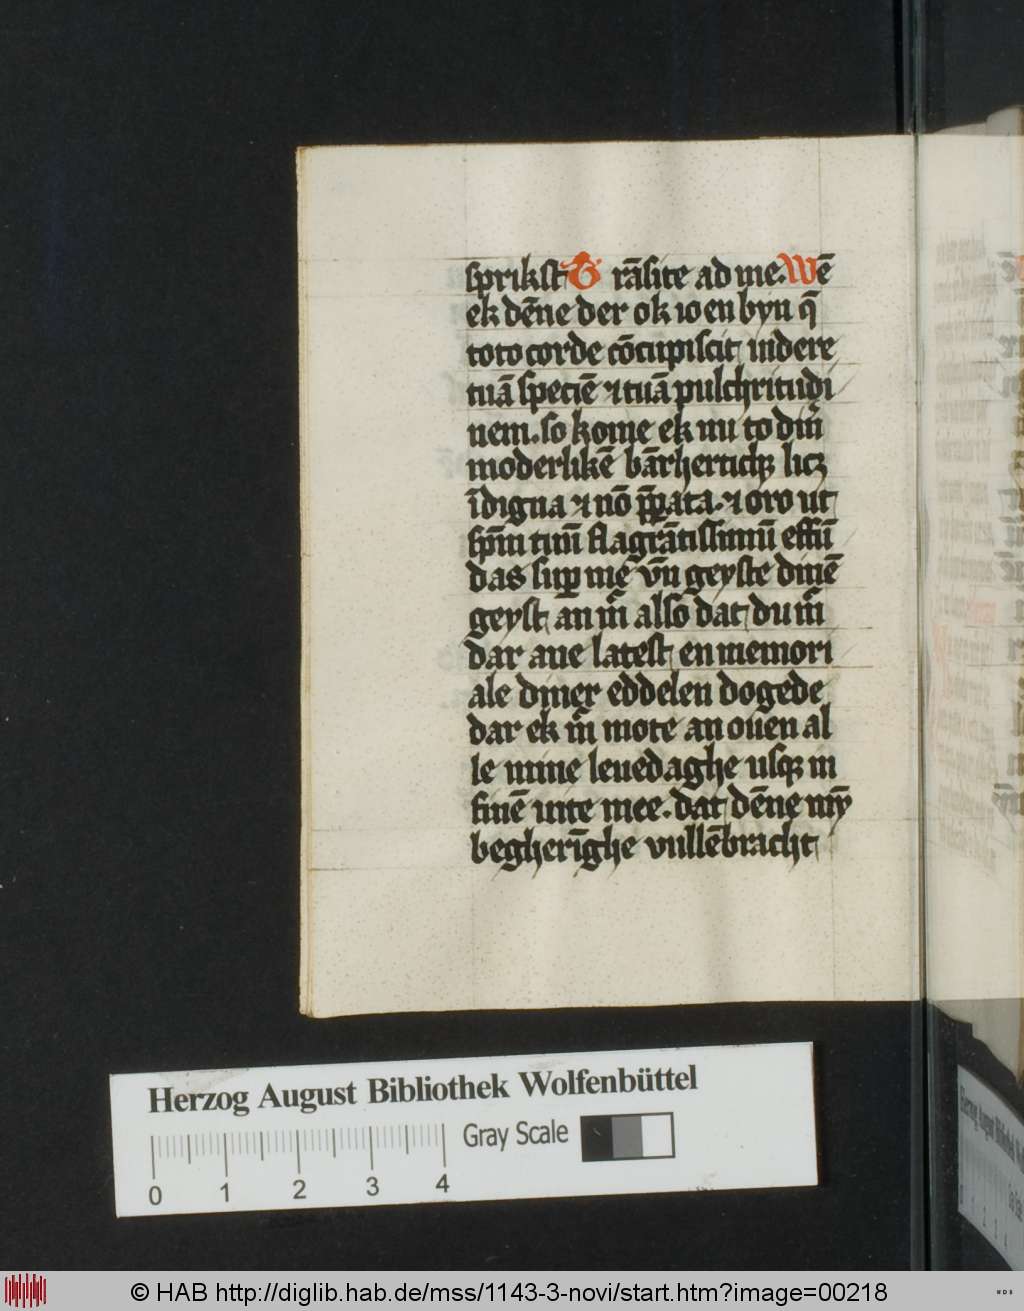 sprikst Trāsite ad me. Wē
ek dēne der ok io en byn q̄
toto corde cōcupiscit indere
tuā speciē ⁊ tuā pulchritudi
nem. so kome ek nu to dīn̄
moderlikē bārherticħ licꝫ
īdigna ⁊ nō p̄pata. ⁊ oro ut
sp̄m tuū flagrātissimū effū
das suꝑ me vn̄ geyste dinē
geyst an m̄ also dat du m̄
dar ane latest en memori
ale diner eddelen dogede
dar ek m̄ mote an ouen al
le mine leuedaghe usqꝫ in
finē uite mee. dat dēne mȳ
begherīghe vullēbracht
Herzog August Bibliothek Wolfenbüttel
Gray Scale
0 1 2 3 4
© HAB http://diglib.hab.de/mss/1143-3-novi/start.htm?image=00218